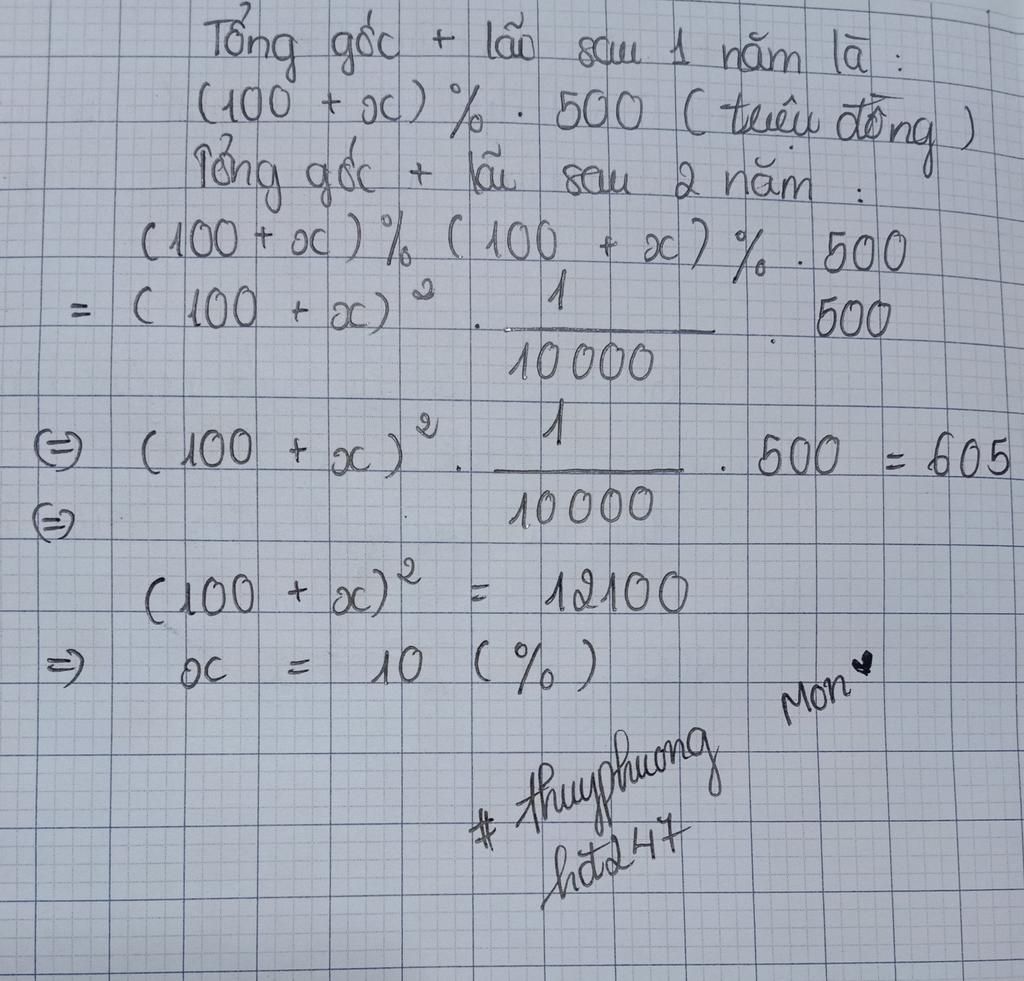 Tổng gốc + lãi sau 1 năm là :
(100 + x) % . 500 ( triệu đồng )
Tổng gốc + lãi sau 2 năm :
(100 + x) % (100 + x) % . 500
= ( 100 + x)² . 1/10000 . 500
⇔ (100 + x)² . 1/10000 . 500 = 605
⇔
(100 + x)² = 12100
⇒ x = 10 (%)
Mon
# thuyphuong
hđ247